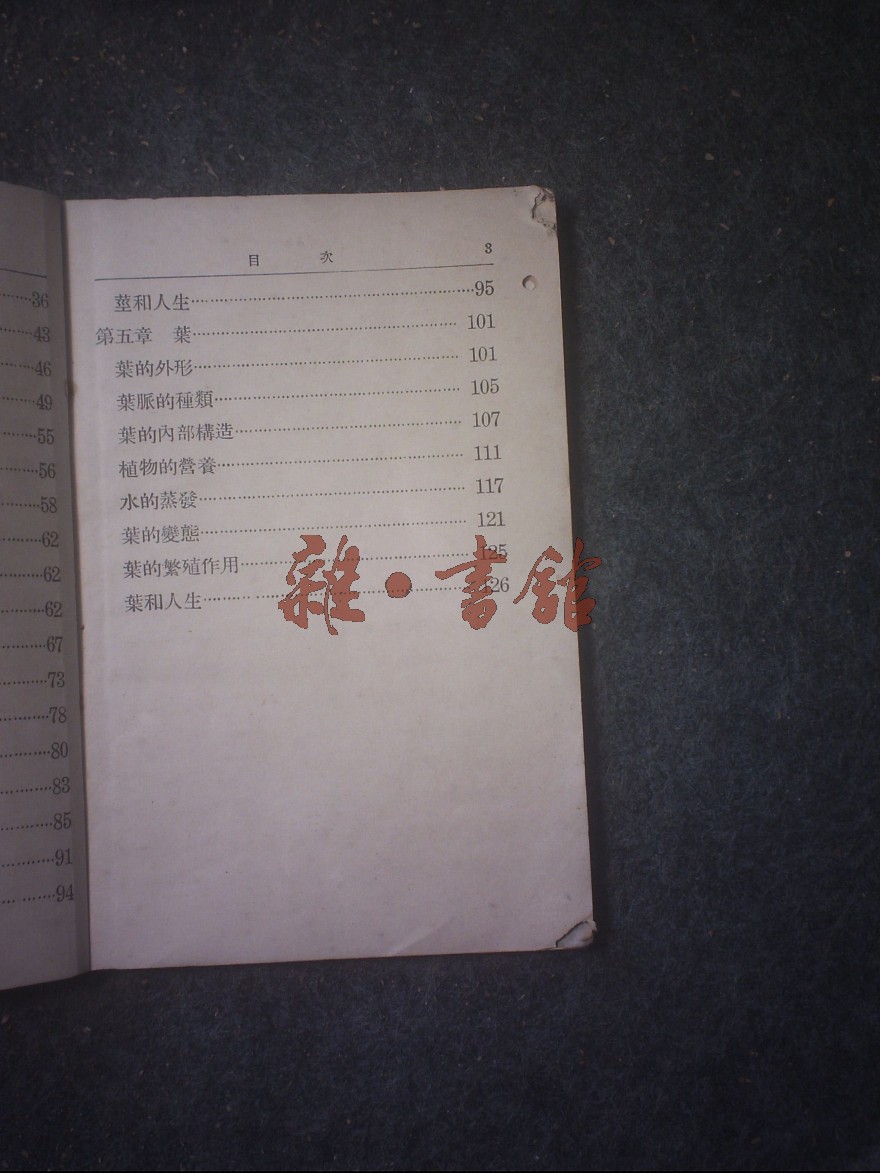 36
43
46
49
55
56
58
62
62
62
67
73
78
80
83
85
91
94
目 次 3
莖和人生 95
第五章 葉 101
葉的外形 101
葉脈的種類 105
葉的內部構造 107
植物的營養 111
水的蒸發 117
葉的變態 121
葉的繁殖作用 125
葉和人生 126
雜·書館